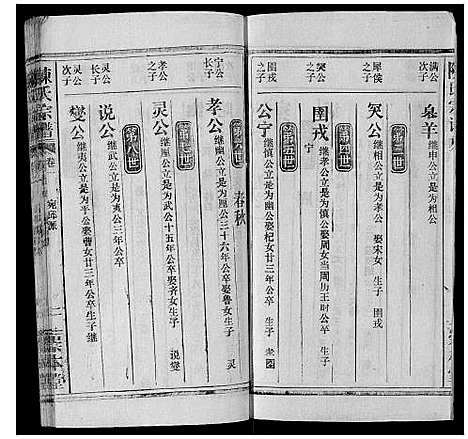 滿公
次子
皋羊
继申公立是为相公
第三世
犀侯
之子
突公
继相公立是为孝公 娶宋女 生子 圉戎
第四世
突公
之子
圉戎
继孝公立是为慎公娶周女当周历王时公卒 生子
宁
第五世
圉戎
之子
公宁
继慎公立是为幽公娶杞女廿三年公卒生子 孝
春秋
第六世
宁公
长子
孝公
继幽公立是为厘公三十六年公卒娶鲁女生子 灵
第七世
孝公
之子
灵公
继厘公立是为武公十五年公卒娶齐女生子 说燮
第八世
灵公
长子
说公
继武公立是为夷公三年公卒
灵公
次子
燮公
继夷公立是为平公娶曹女廿三年公卒生子继
陳氏宗譜
卷
宛邱派